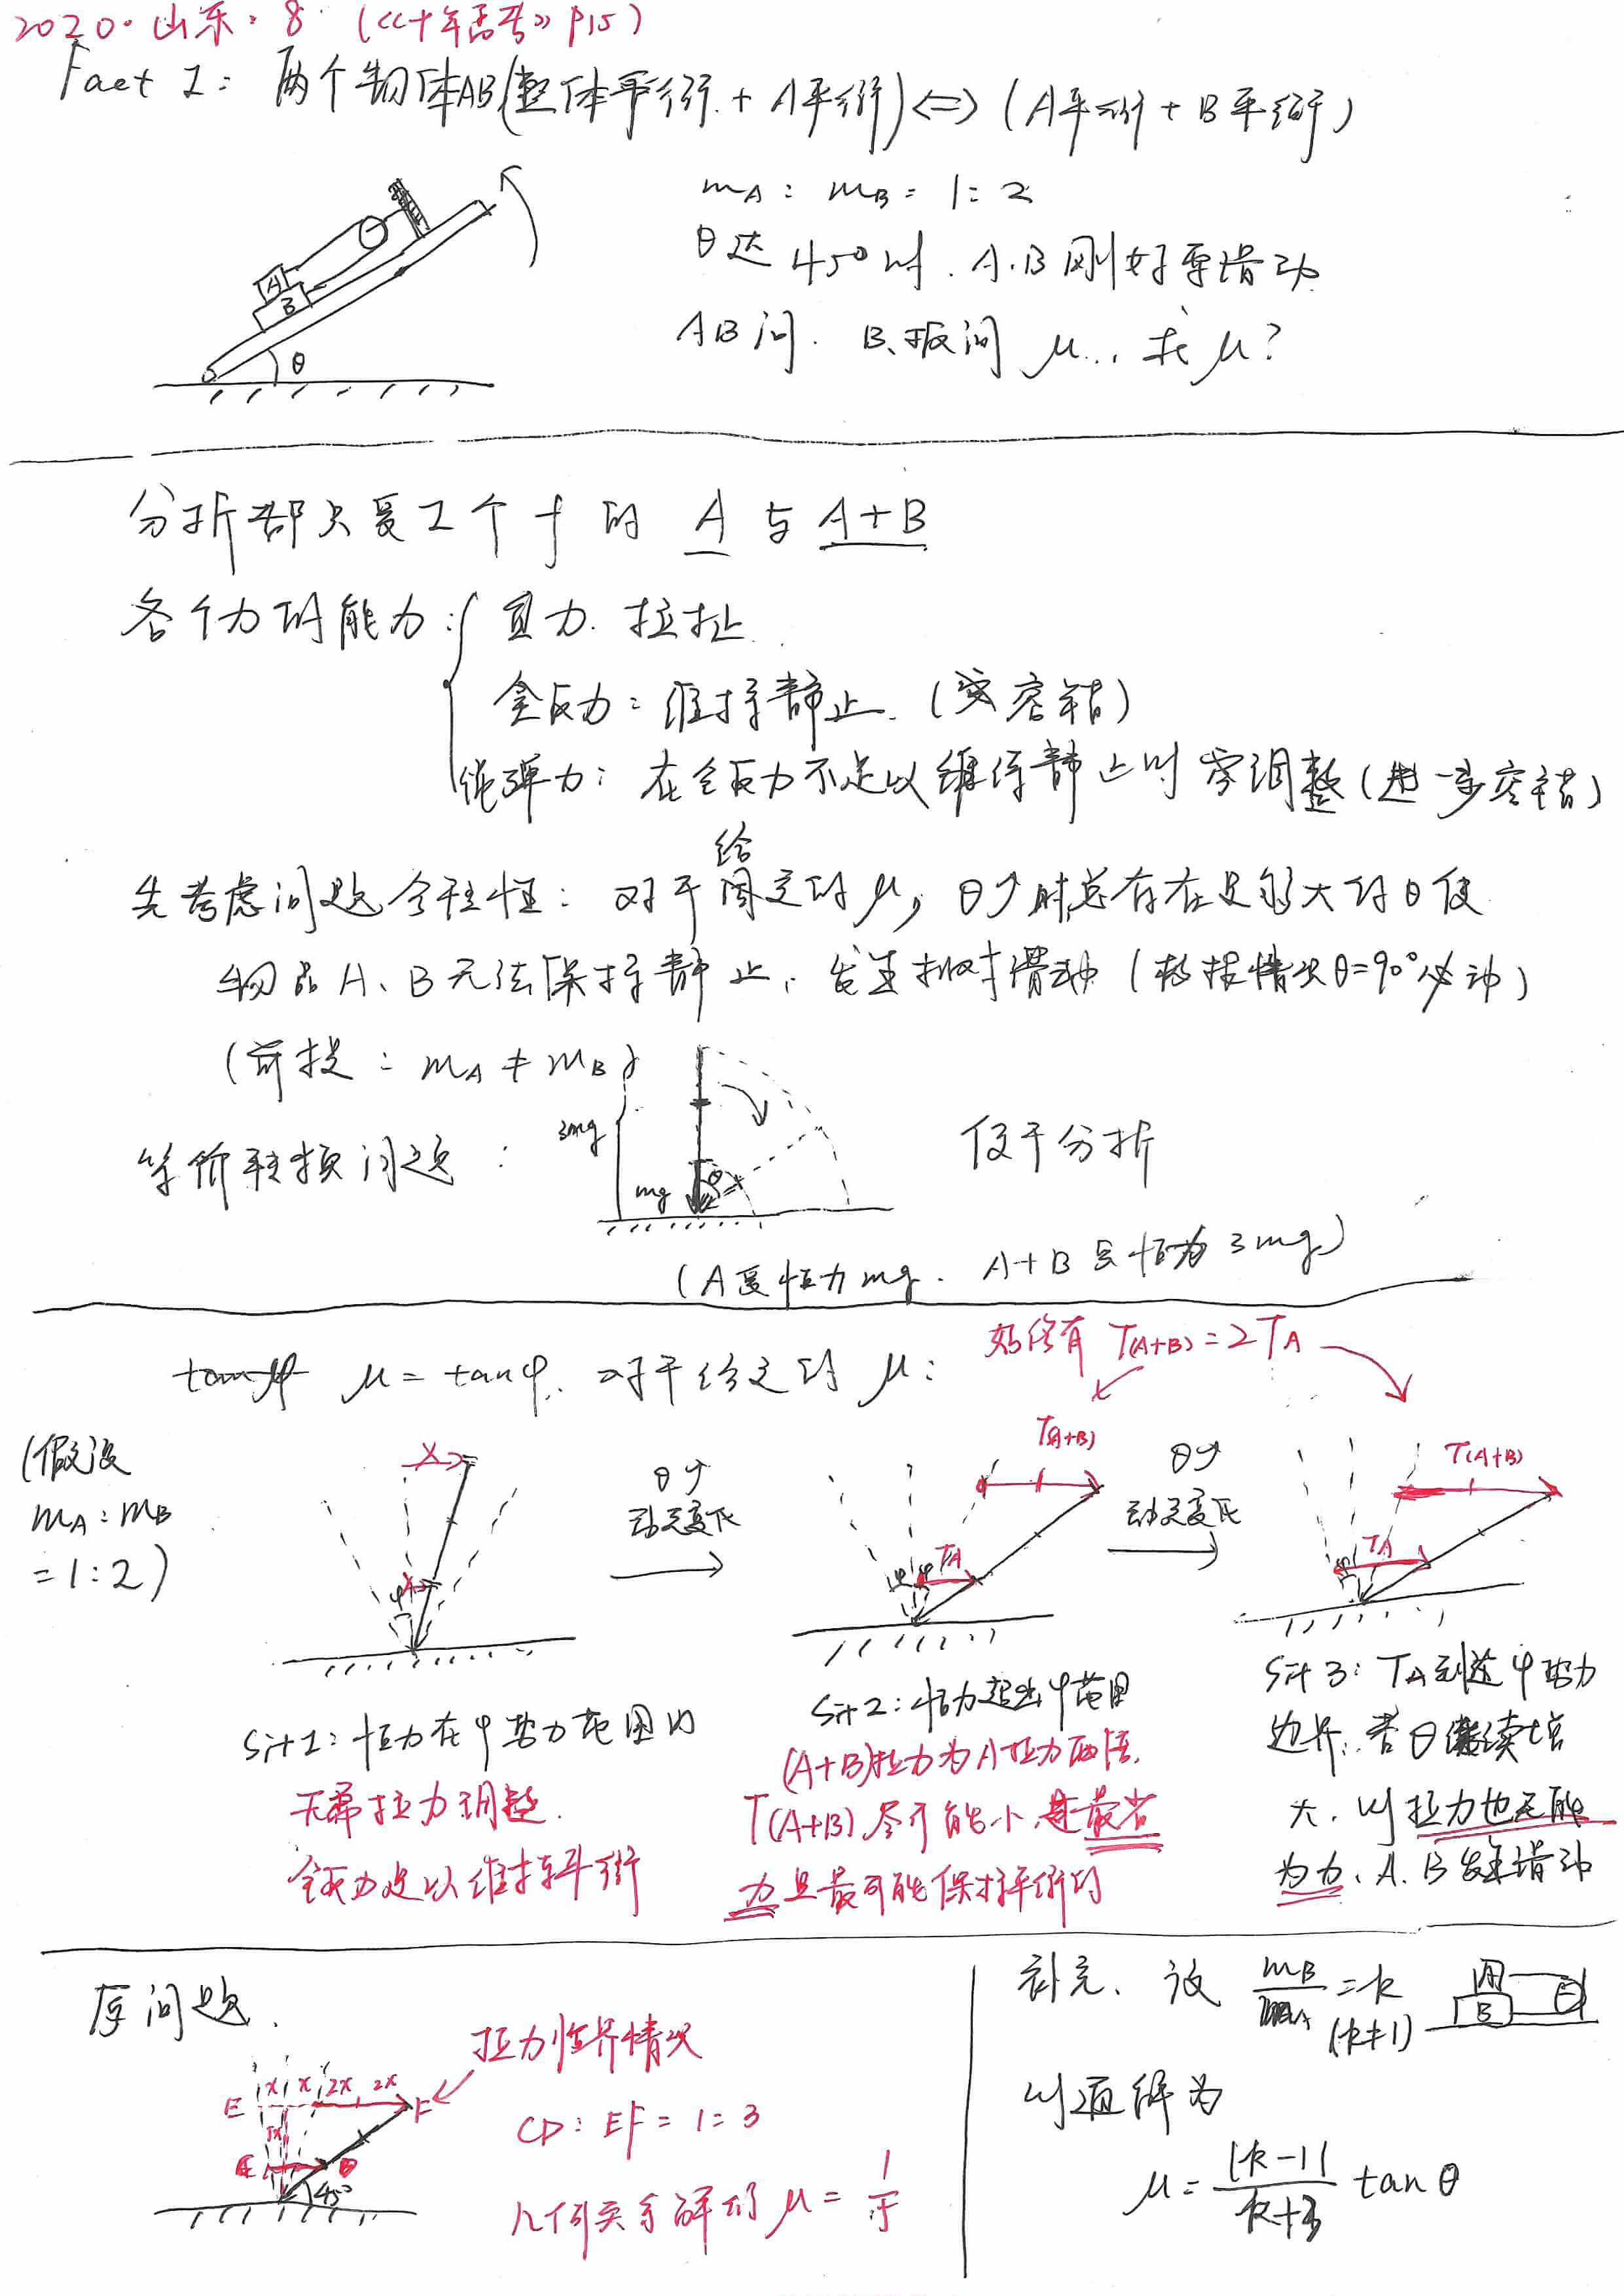 2020·山东·8 (《十年高考》P15)
Fact 1: 两个物体AB(整体平衡 + A平衡)<=>(A平衡 + B平衡)
mA : mB = 1:2
θ达 45° 时. A.B 刚好要滑动
A B θ
AB间. B、板间 μ... 求 μ?
分析都只受1个 f 的 A 与 A+B
各个力的能力: 重力. 拉扯.
全反力: 维持静止. (容错)
绳弹力: 在全反力不足以维持静止时 需调整 (进一步容错)
给
先考虑问题合理性: 对于固定的 μ, θ↗时总有存在足够大的θ使
物品 A、B 无法保持静止, 发生相对滑动 (极据情况θ=90°必动)
(前提: mA ≠ mB)
3mg
等价转换问题: mg θ 便于分析
(A受恒力 mg. A+B 受恒力 3mg)
始终有 T(A+B) = 2TA
tanφ μ = tanφ. 对于给定的 μ:
(假设
mA : mB
= 1:2)
X X φ
θ↗
动态变化
T(A+B) TA φ φ
θ↗
动态变化
T(A+B) TA
Sit 1: 恒力在φ势力范围内
无需拉力调整.
全反力足以维持平衡
Sit 2: 恒力超出φ范围
(A+B)拉力为A拉力两倍.
T(A+B) 尽可能小 是最省
力且最可能保持平衡的
Sit 3: TA到达φ势力
边界. 若θ继续增
大. 则拉力也无能
为力、A.B 发生滑动
原问题.
E x x 2x 2x F
C D 45°
拉力临界情况
CD : EF = 1 : 3
几何关系解得 μ = 1/5
补充. 设 mB/mA = k
(k≠1)
A B
则通解为
μ = |k-1|/k+3 tanθ